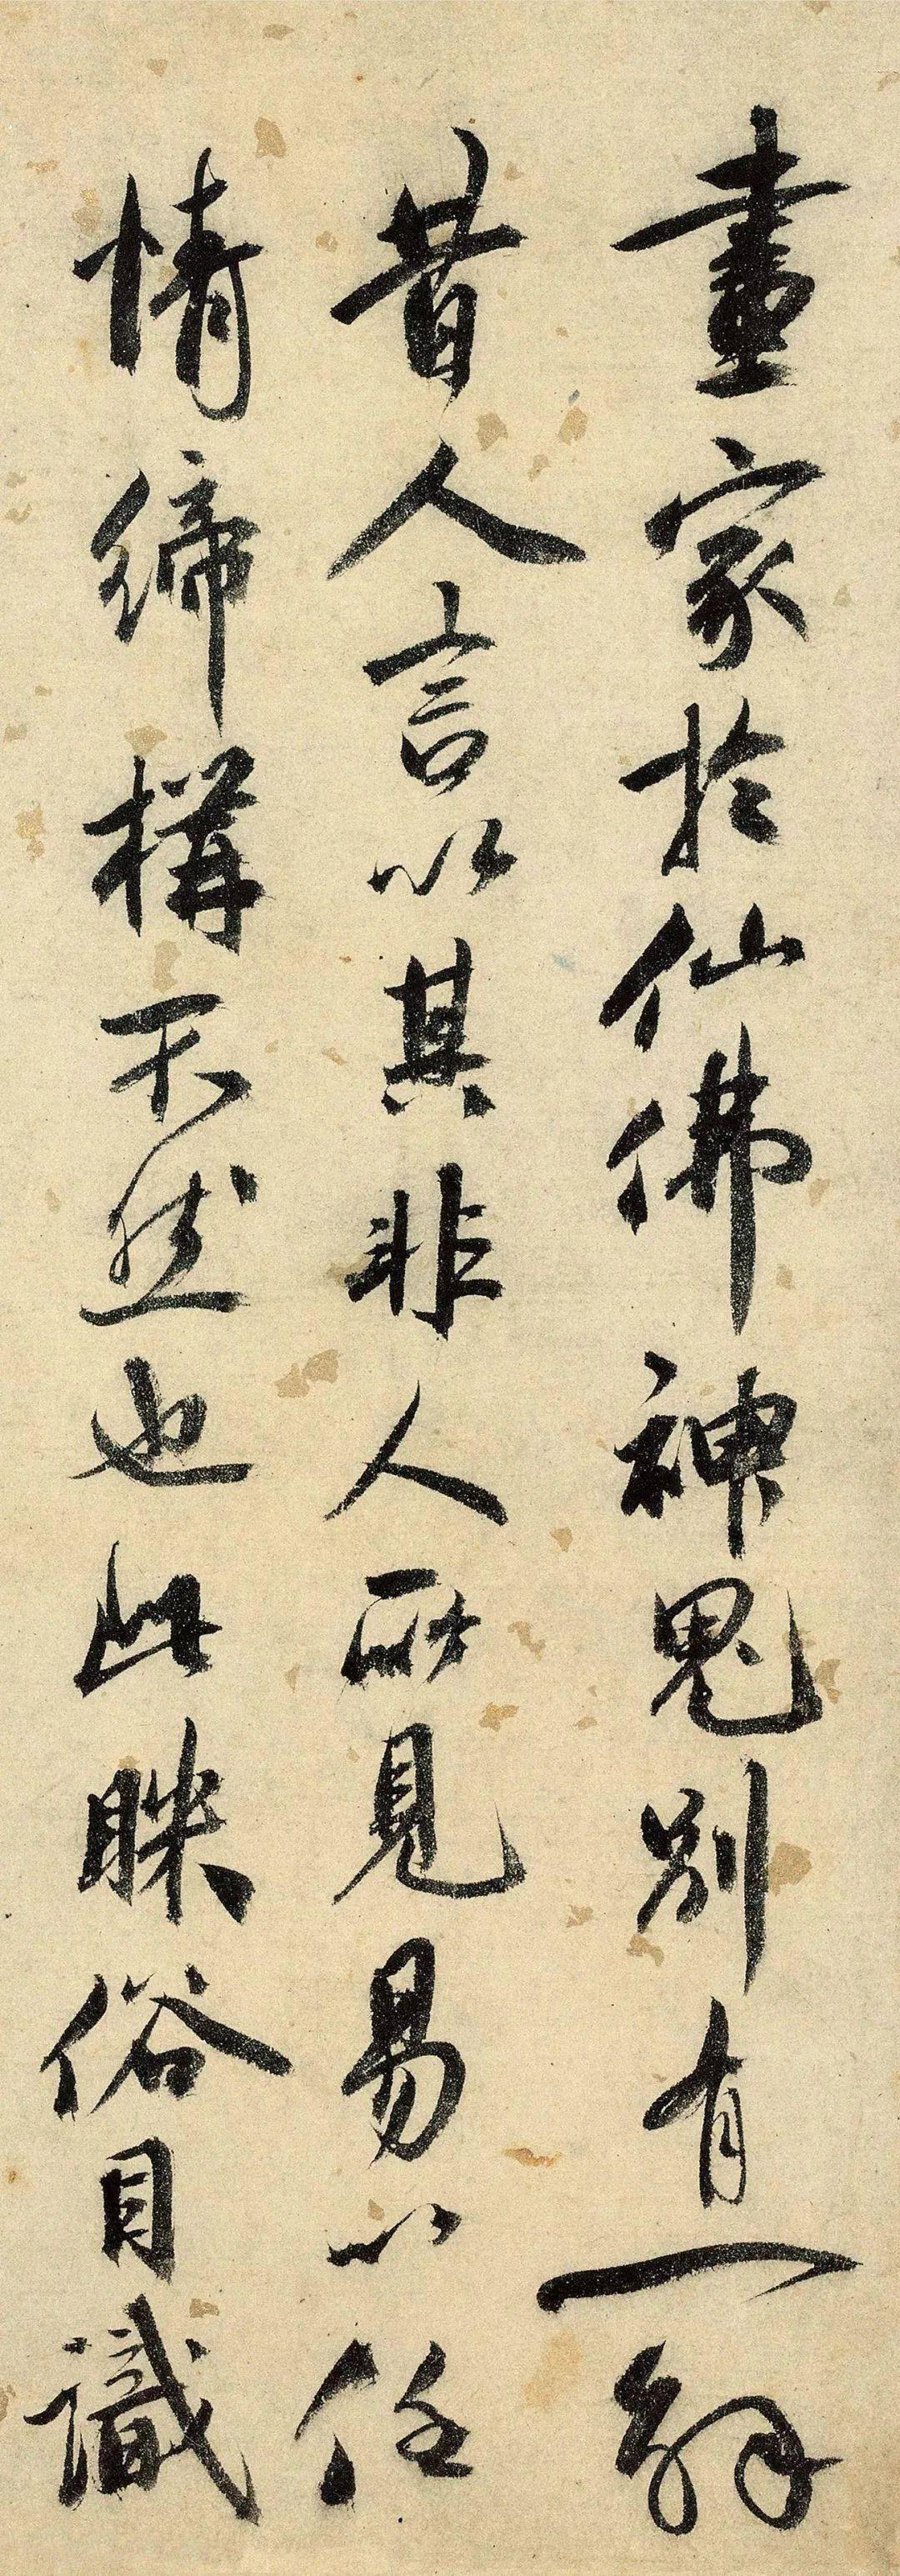 畫家於仙佛神鬼別有一解
昔人言以其非人所見易以任
情締構不然也此眯俗目識